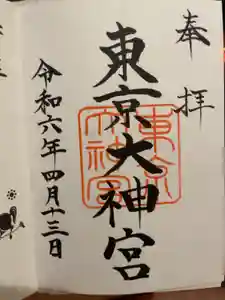 奉拝
東京大神宮
東京
大神宮
令和六年四月十三日